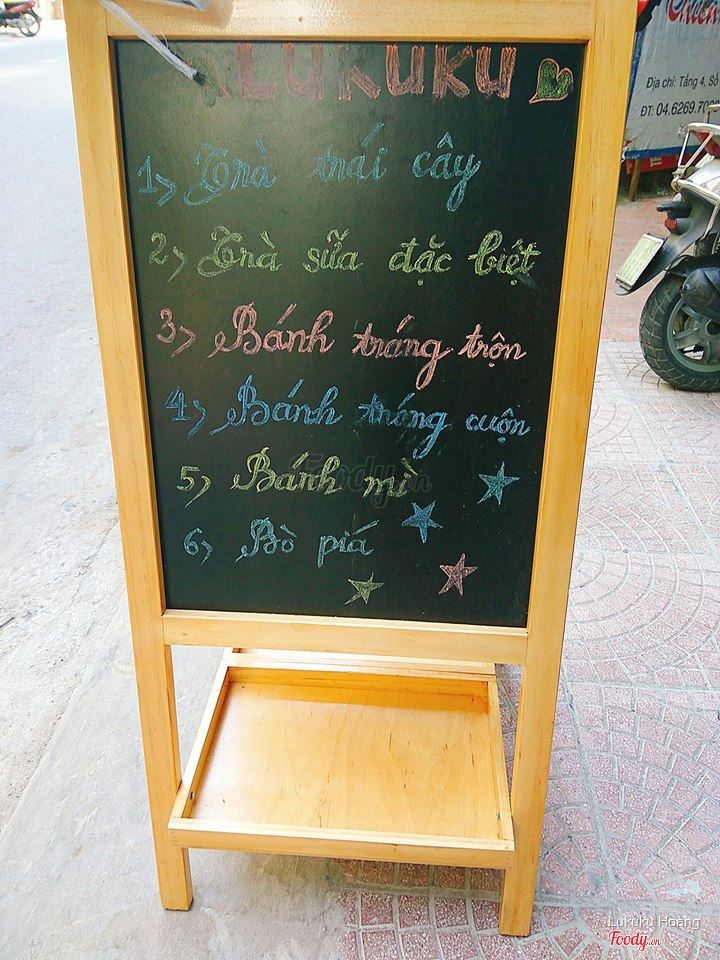 LUKUKU
1> Trà trái cây
2> Trà sữa đặc biệt
3> Bánh tráng trộn
4> Bánh tráng cuộn
5> Bánh mì
6> Bò piá
Địa chỉ: Tầng 4, Số
ĐT: 04.6269.70
Foody.vn
Lukuku Hoàng
Foody.vn